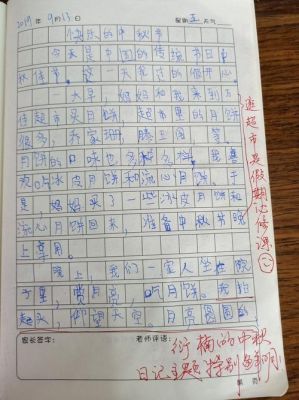 2019年9月13日 星期五 天气
快乐的中秋节
今天是中国的传统节日中
秋佳节。这一天我过的很开心
一大早,妈妈和我来到万
佳超市买月饼。超市里的月饼
很多,有家
月饼的口味也多种多样。我喜
欢吃冰皮月饼和流心月饼。于
是,妈妈买了一些冰皮月饼和
流心月饼回来,准备中秋节晚
上享用。
晚上,我们一家人坐在院
子里,赏月亮,吃月饼。我抬
起头,仰望天空。月亮圆圆的
逛超市是假期必修课
家长签字: 老师评语:
的中秋
日记主题特别鲜明